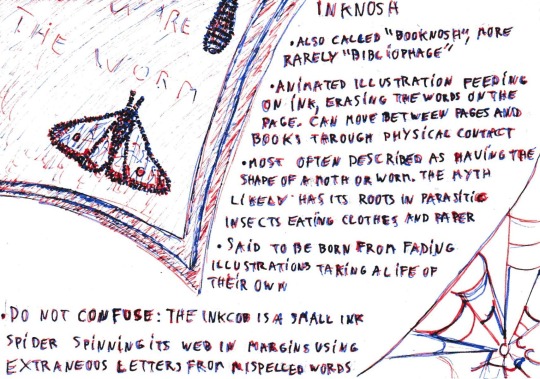 WARE
THE WORM
INKNOSH
• ALSO CALLED "BOOKNOSH", MORE
RARELY "BIBLIOPHAGE"
• ANIMATED ILLUSTRATION FEEDING
ON INK, ERASING THE WORDS ON THE
PAGE. CAN MOVE BETWEEN PAGES AND
BOOKS THROUGH PHYSICAL CONTACT
• MOST OFTEN DESCRIBED AS HAVING THE
SHAPE OF A MOTH OR WORM. THE MYTH
LIKELY HAS ITS ROOTS IN PARASITIC
INSECTS EATING CLOTHES AND PAPER
• SAID TO BE BORN FROM FADING
ILLUSTRATIONS TAKING A LIFE OF
THEIR OWN
• DO NOT CONFUSE: THE INKCOB IS A SMALL INK
SPIDER SPINNING ITS WEB IN MARGINS USING
EXTRANEOUS LETTERS FROM MISPELLED WORDS